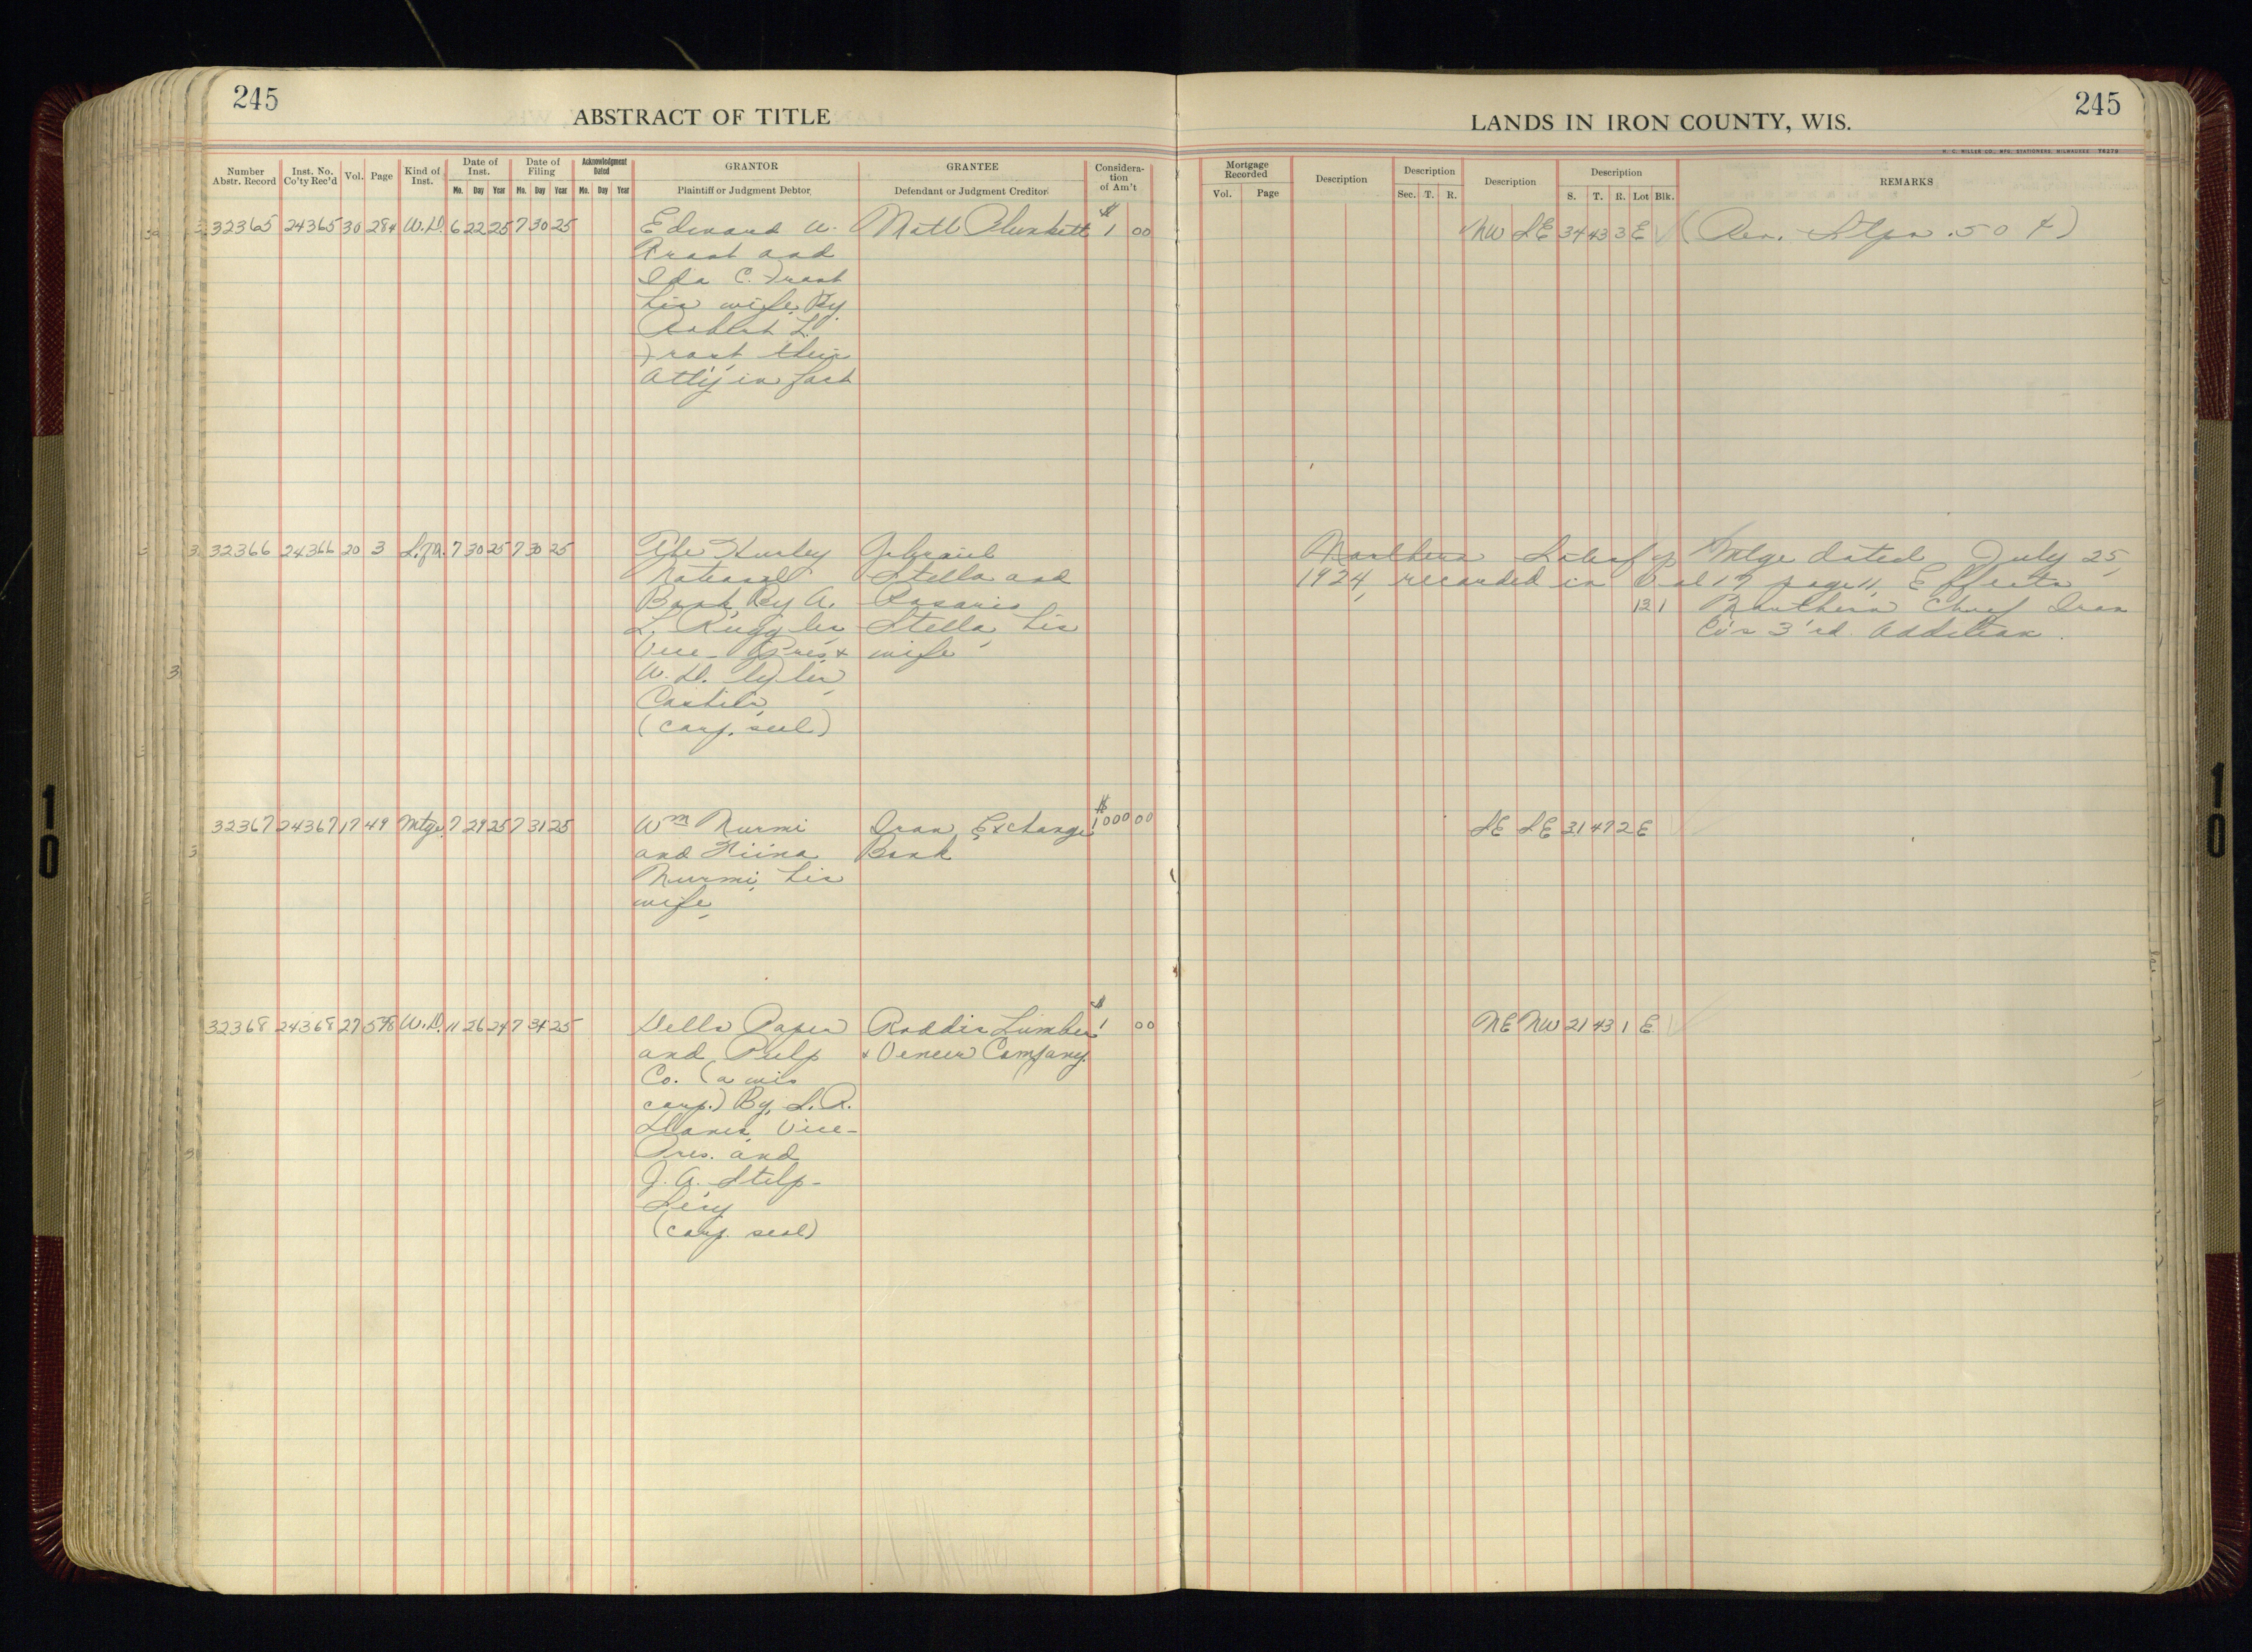 245
ABSTRACT OF TITLE
Number Abstr. Record Inst. No. Co'ty Rec'd Vol. Page Kind of Inst. Date of Inst. Mo. Day Year Date of Filing Mo. Day Year Acknowledgment Dated Mo. Day Year GRANTOR Plaintiff or Judgment Debtor GRANTEE Defendant or Judgment Creditor Considera-tion of Am't
32365 24365 30 284 W.D. 6 22 25 7 30 25 Edward W. Matt Plunkett $1 00
Frost and
Ida C. Frost
his wife, By
Robert L.
Frost, their
Att'y in fact
32366 24366 20 3 7 30 25 7 30 25 The Hurley Gabraiel
National Stella and
Bank By A. Rosario
L. Ruggles Stella, his
Vice-Pres & wife
Cashier
(corp. seal)
32367 24367 17 49 Mtge. 7 29 25 7 31 25 Wm Nurmi Iron Exchange $1000 00
and Hiina Bank
Nurmi, his
wife,
32368 24368 27 598 W.D. 11 26 24 7 31 25 Dells Paper Roddis Lumber $1 00
and Pulp & Veneer Company.
Co. (a wis
corp.) By
Vice-
Pres. and
J. A. Stilp-
Sec'y
(corp. seal)
245
LANDS IN IRON COUNTY, WIS.
H. C. MILLER CO., MFG. STATIONERS, MILWAUKEE
Mortgage Recorded Vol. Page Description Description Sec. T. R. Description Description S. T. R. Lot Blk. REMARKS
NW SE 34 43 3 E (Rev. Stps .50 ¢)
Mtge dated July 25,
1924, recorded in Vol 17 page 11, Effects
12 1 Northern Chief Iron
Co's 3'rd Addition.
SE SE 31 47 2 E
NE NW 21 43 1 E
10
10